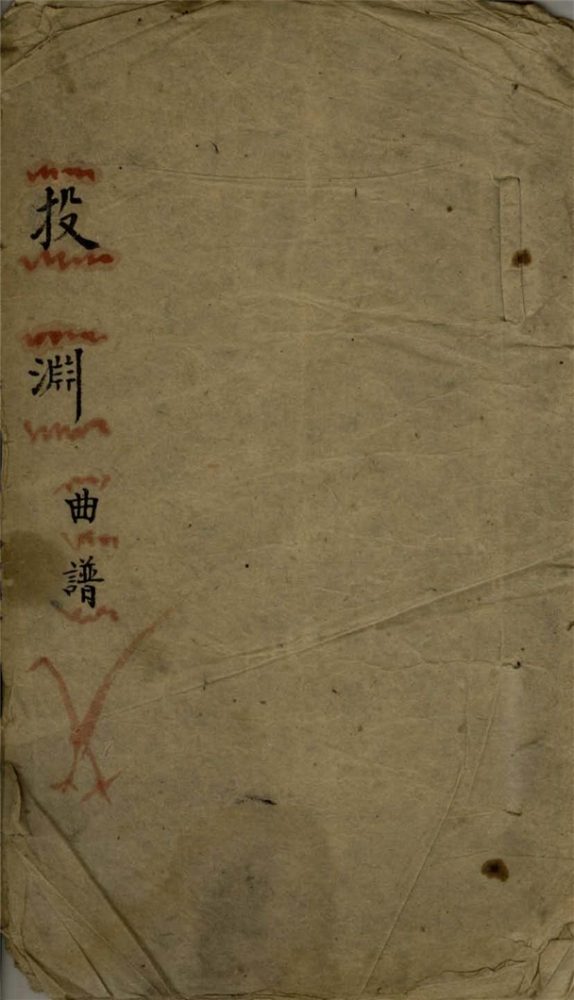 投淵曲譜